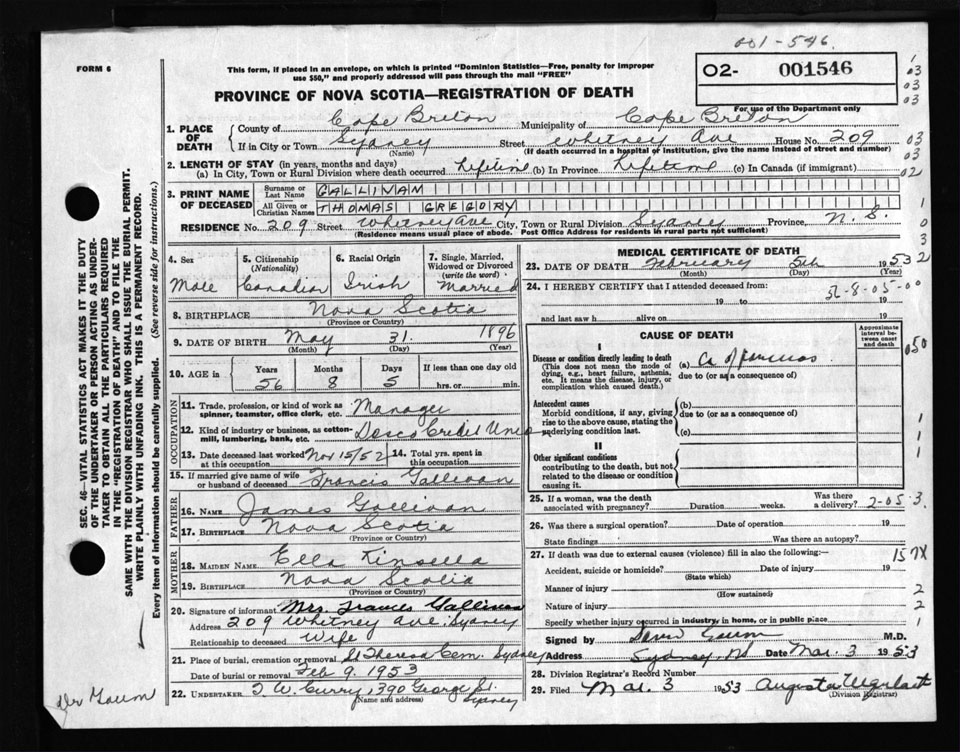 001-546.
FORM 6
This form, if placed in an envelope, on which is printed "Dominion Statistics—Free, penalty for improper
use $50," and properly addressed will pass through the mail "FREE"
O2- 001546
For use of the Department only
PROVINCE OF NOVA SCOTIA—REGISTRATION OF DEATH
1. PLACE OF DEATH { County of Cape Breton Municipality of Cape Breton
If in City or Town Sydney (Name) Street Whitney Ave House No. 209
(If death occurred in a hospital of institution, give the name instead of street and number)
2. LENGTH OF STAY (in years, months and days)
(a) In City, Town or Rural Division where death occurred Lifetime (b) In Province Lifetime (c) In Canada (if immigrant)
3. PRINT NAME OF DECEASED { Surname or Last Name GALLIVAN
All Given or Christian Names THOMAS GREGORY
RESIDENCE No. 209 Street Whitney Ave City, Town or Rural Division Sydney Province N. S.
(Residence means usual place of abode. Post Office Address for residents in rural parts not sufficient)
4. Sex Male
5. Citizenship (Nationality) Canadian
6. Racial Origin Irish
7. Single, Married, Widowed or Divorced (write the word) Married
8. BIRTHPLACE Nova Scotia
(Province or Country)
9. DATE OF BIRTH May 31. 1896
(Month) (Day) (Year)
10. AGE in { Years 56 Months 8 Days 5 If less than one day old
hrs. or min.
OCCUPATION
11. Trade, profession, or kind of work as spinner, teamster, office clerk, etc. Manager
12. Kind of industry or business, as cotton-mill, lumbering, bank, etc. Dosco Credit Union
13. Date deceased last worked at this occupation Nov 15/52
14. Total yrs. spent in this occupation
15. If married give name of wife or husband of deceased Francis Gallivan
FATHER
16. NAME James Gallivan
17. BIRTHPLACE Nova Scotia
(Province or Country)
MOTHER
18. MAIDEN NAME Ella Kinsella
19. BIRTHPLACE Nova Scotia
(Province or Country)
20. Signature of informant Mrs. Frances Gallivan
Address 209 Whitney Ave. Sydney
Relationship to deceased Wife
21. Place of burial, cremation or removal St Theresa Cem. Sydney
Date of burial or removal Feb 9. 1953
22. UNDERTAKER T. W. Curry, 390 George St. Sydney
(Name and address)
MEDICAL CERTIFICATE OF DEATH
23. DATE OF DEATH February 5th 1953
(Month) (Day) (Year)
24. I HEREBY CERTIFY that I attended deceased from:
56-8-05-00
19 to 19
and last saw h alive on 19
CAUSE OF DEATH
Approximate interval between onset and death
I
Disease or condition directly leading to death
(This does not mean the mode of dying, e.g., heart failure, asthenia, etc. It means the disease, injury, or complication which caused death.)
(a) Ca of pancreas
due to (or as a consequence of)
Antecedent causes
Morbid conditions, if any, giving rise to the above cause, stating the underlying condition last.
(b)
due to (or as a consequence of)
(c)
II
Other significant conditions contributing to the death, but not related to the disease or condition causing it.
25. If a woman, was the death associated with pregnancy? Duration weeks. Was there a delivery?
2-05-3
26. Was there a surgical operation? Date of operation 19
State findings Was there an autopsy?
27. If death was due to external causes (violence) fill in also the following:
157X
Accident, suicide or homicide? Date of injury 19
(State which)
Manner of injury
(How sustained)
Nature of injury
Specify whether injury occurred in industry, in home, or in public place
Signed by M.D.
Address Sydney, NS Date Mar. 3 1953
28. Division Registrar's Record Number
29. Filed Mar. 3 1953 Augusta
(Division Registrar)
SEC. 46—VITAL STATISTICS ACT MAKES IT THE DUTY
OF THE UNDERTAKER OR PERSON ACTING AS UNDER-
TAKER TO OBTAIN ALL THE PARTICULARS REQUIRED
IN THE "REGISTRATION OF DEATH" AND TO FILE THE
SAME WITH THE DIVISION REGISTRAR WHO SHALL ISSUE THE BURIAL PERMIT.
WRITE PLAINLY WITH UNFADING INK. THIS IS A PERMANENT RECORD.
Every item of information should be carefully supplied. (See reverse side for instructions.)
03
03
03
03
03
02
1
0
3
2
050
1
1
1
2
2
1